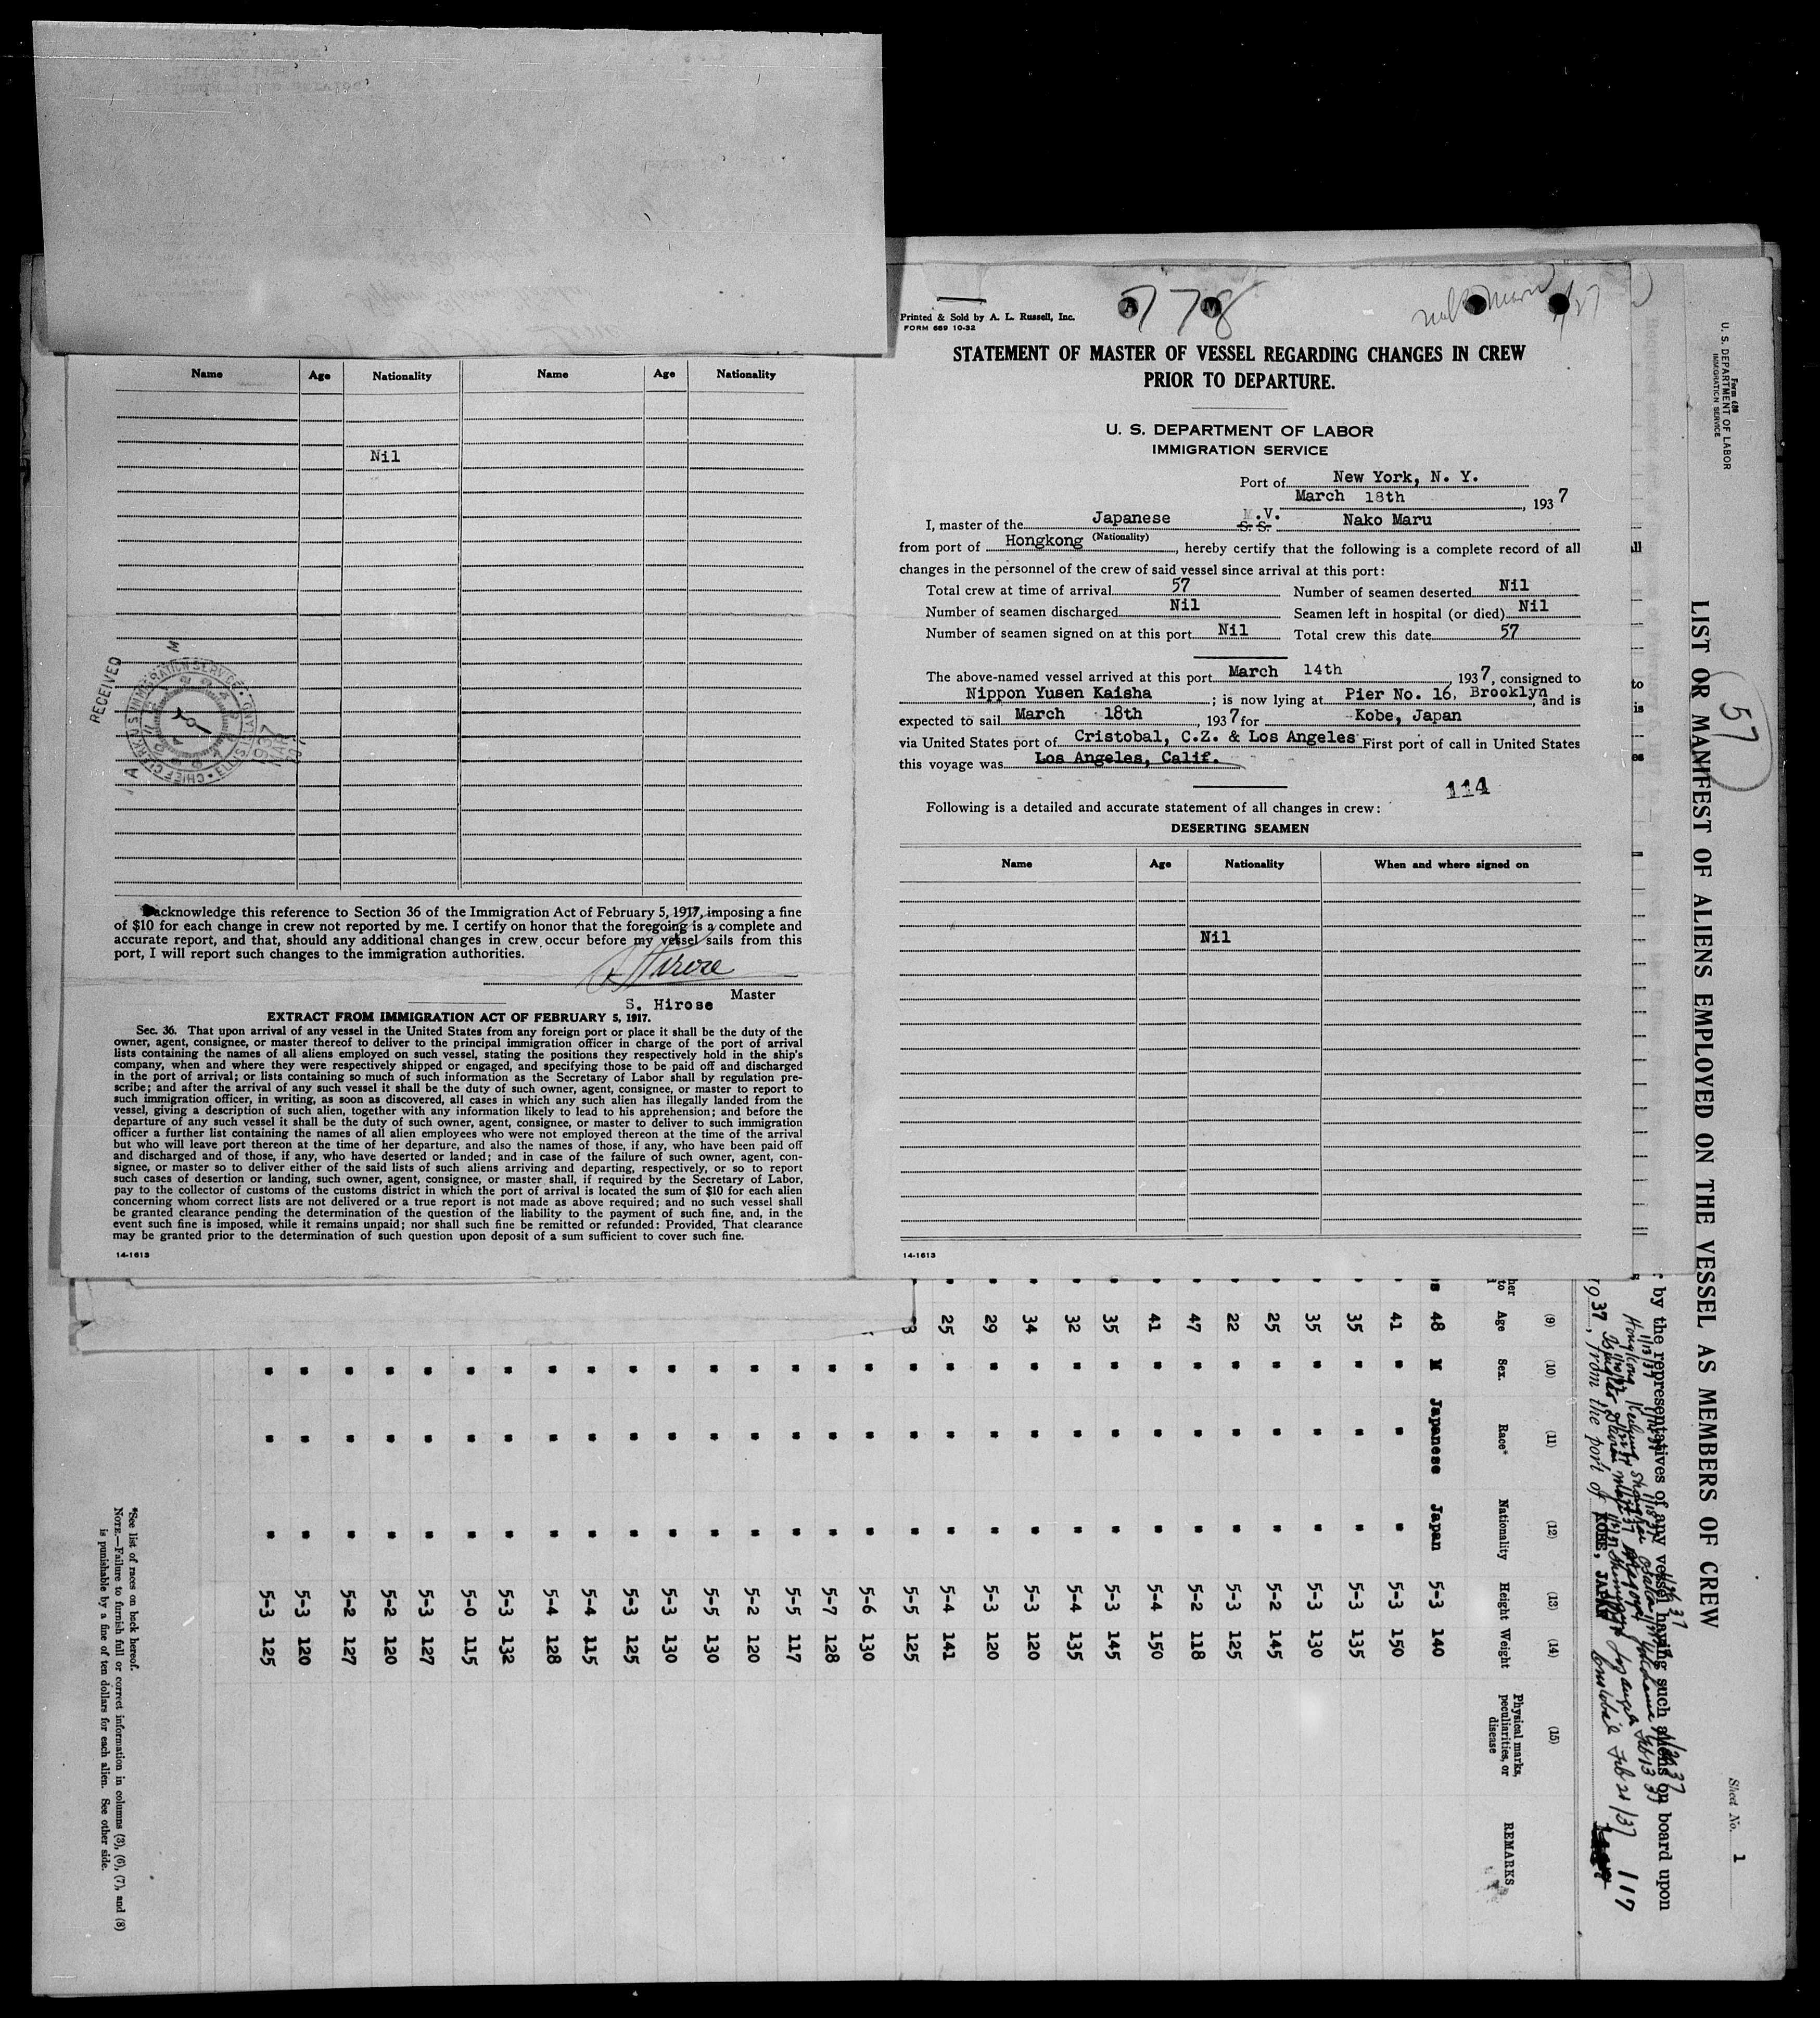 Name Age Nationality Name Age Nationality
Nil
RECEIVED
CHIEF CLERK U.S. IMMIGRATION SERVICE ELLIS ISLAND
1937
MAR
acknowledge this reference to Section 36 of the Immigration Act of February 5, 1917, imposing a fine
of $10 for each change in crew not reported by me. I certify on honor that the foregoing is a complete and
accurate report, and that, should any additional changes in crew occur before my vessel sails from this
port, I will report such changes to the immigration authorities.
S Hirose
S. Hirose Master
EXTRACT FROM IMMIGRATION ACT OF FEBRUARY 5, 1917.
Sec. 36. That upon arrival of any vessel in the United States from any foreign port or place it shall be the duty of the
owner, agent, consignee, or master thereof to deliver to the principal immigration officer in charge of the port of arrival
lists containing the names of all aliens employed on such vessel, stating the positions they respectively hold in the ship's
company, when and where they were respectively shipped or engaged, and specifying those to be paid off and discharged
in the port of arrival; or lists containing so much of such information as the Secretary of Labor shall by regulation pre-
scribe; and after the arrival of any such vessel it shall be the duty of such owner, agent, consignee, or master to report to
such immigration officer, in writing, as soon as discovered, all cases in which any such alien has illegally landed from the
vessel, giving a description of such alien, together with any information likely to lead to his apprehension; and before the
departure of any such vessel it shall be the duty of such owner, agent, consignee, or master to deliver to such immigration
officer a further list containing the names of all alien employees who were not employed thereon at the time of the arrival
but who will leave port thereon at the time of her departure, and also the names of those, if any, who have been paid off
and discharged and of those, if any, who have deserted or landed; and in case of the failure of such owner, agent, con-
signee, or master so to deliver either of the said lists of such aliens arriving and departing, respectively, or so to report
such cases of desertion or landing, such owner, agent, consignee, or master shall, if required by the Secretary of Labor,
pay to the collector of customs of the customs district in which the port of arrival is located the sum of $10 for each alien
concerning whom correct lists are not delivered or a true report is not made as above required; and no such vessel shall
be granted clearance pending the determination of the question of the liability to the payment of such fine, and, in the
event such fine is imposed, while it remains unpaid; nor shall such fine be remitted or refunded: Provided, That clearance
may be granted prior to the determination of such question upon deposit of a sum sufficient to cover such fine.
14-1613
778
Nako Maru
Printed & Sold by A. L. Russell, Inc.
FORM 689 10-32
STATEMENT OF MASTER OF VESSEL REGARDING CHANGES IN CREW
PRIOR TO DEPARTURE.
U. S. DEPARTMENT OF LABOR
IMMIGRATION SERVICE
Port of New York, N. Y.
March 18th, 1937
I, master of the Japanese M.V. S. S. Nako Maru
(Nationality)
from port of Hongkong, hereby certify that the following is a complete record of all
changes in the personnel of the crew of said vessel since arrival at this port:
Total crew at time of arrival 57 Number of seamen deserted Nil
Number of seamen discharged Nil Seamen left in hospital (or died) Nil
Number of seamen signed on at this port Nil Total crew this date 57
The above-named vessel arrived at this port March 14th, 1937, consigned to
Nippon Yusen Kaisha; is now lying at Pier No. 16, Brooklyn, and is
expected to sail March 18th, 1937 for Kobe, Japan
via United States port of Cristobal, C.Z. & Los Angeles First port of call in United States
this voyage was Los Angeles, Calif.
114
Following is a detailed and accurate statement of all changes in crew:
DESERTING SEAMEN
Name Age Nationality When and where signed on
Nil
14-1613
Form 689
U. S. DEPARTMENT OF LABOR
IMMIGRATION SERVICE
57
LIST OR MANIFEST OF ALIENS EMPLOYED ON THE VESSEL AS MEMBERS OF CREW
Sheet No. 1
by the representatives of any vessel having such aliens on board upon
1937, from the port of KOBE, JAPAN
Cristobal Feb 21/37
117
(9) (10) (11) (12) (13) (14) (15)
Age Sex. Race* Nationality Height Weight Physical marks, peculiarities, or disease REMARKS
48 M Japanese Japan 5-3 140
41 " " " 5-3 150
35 " " " 5-3 135
35 " " " 5-3 130
25 " " " 5-2 145
22 " " " 5-3 125
47 " " " 5-2 118
41 " " " 5-4 150
35 " " " 5-3 145
32 " " " 5-4 135
34 " " " 5-3 120
29 " " " 5-3 120
25 " " " 5-4 141
" " " 5-5 125
" " " 5-6 130
" " " 5-7 128
" " " 5-5 117
" " " 5-2 120
" " " 5-5 130
" " " 5-3 130
" " " 5-3 125
" " " 5-4 115
" " " 5-4 128
" " " 5-3 132
" " " 5-0 115
" " " 5-3 127
" " " 5-2 120
" " " 5-2 127
" " " 5-3 120
" " " 5-3 125
*See list of races on back hereof.
NOTE.—Failure to furnish full or correct information in columns (3), (6), (7), and (8)
is punishable by a fine of ten dollars for each alien. See other side.